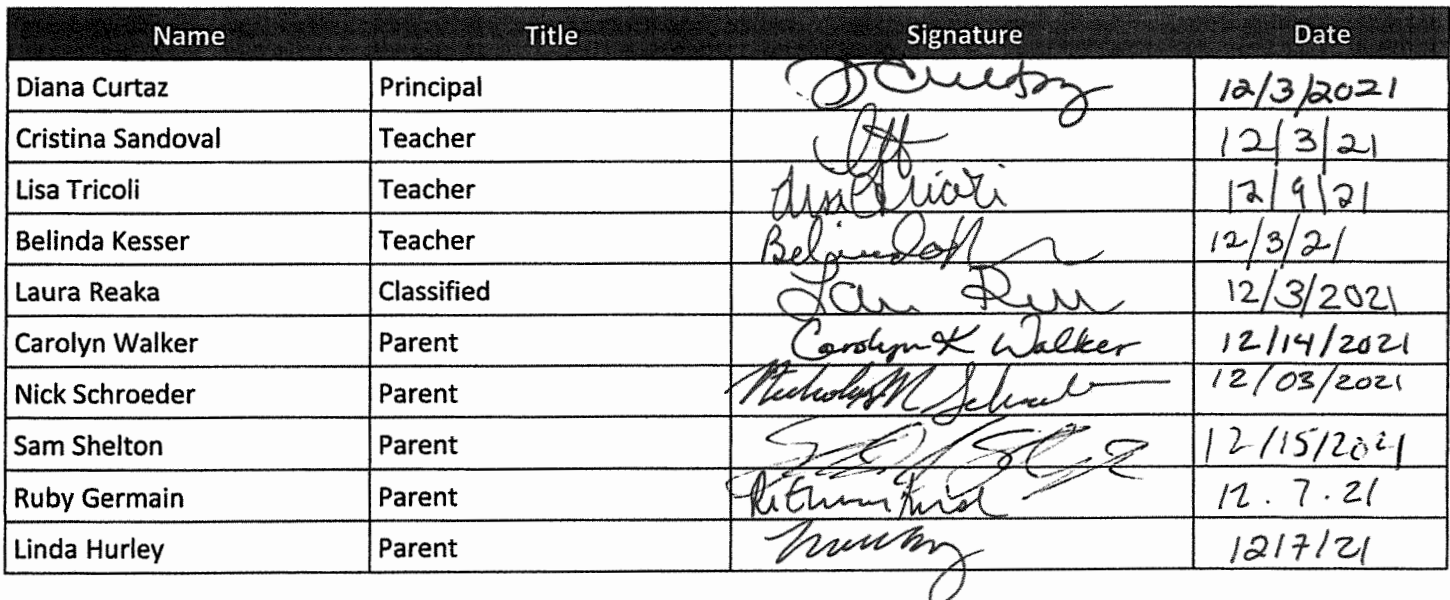 Name Title Signature Date
Diana Curtaz Principal 12/3/2021
Cristina Sandoval Teacher 12/3/21
Lisa Tricoli Teacher 12/9/21
Belinda Kesser Teacher Belinda 12/3/21
Laura Reaka Classified 12/3/2021
Carolyn Walker Parent Carolyn K Walker 12/14/2021
Nick Schroeder Parent Nicholas M 12/03/2021
Sam Shelton Parent 12/15/2021
Ruby Germain Parent 12.7.21
Linda Hurley Parent 12/7/21